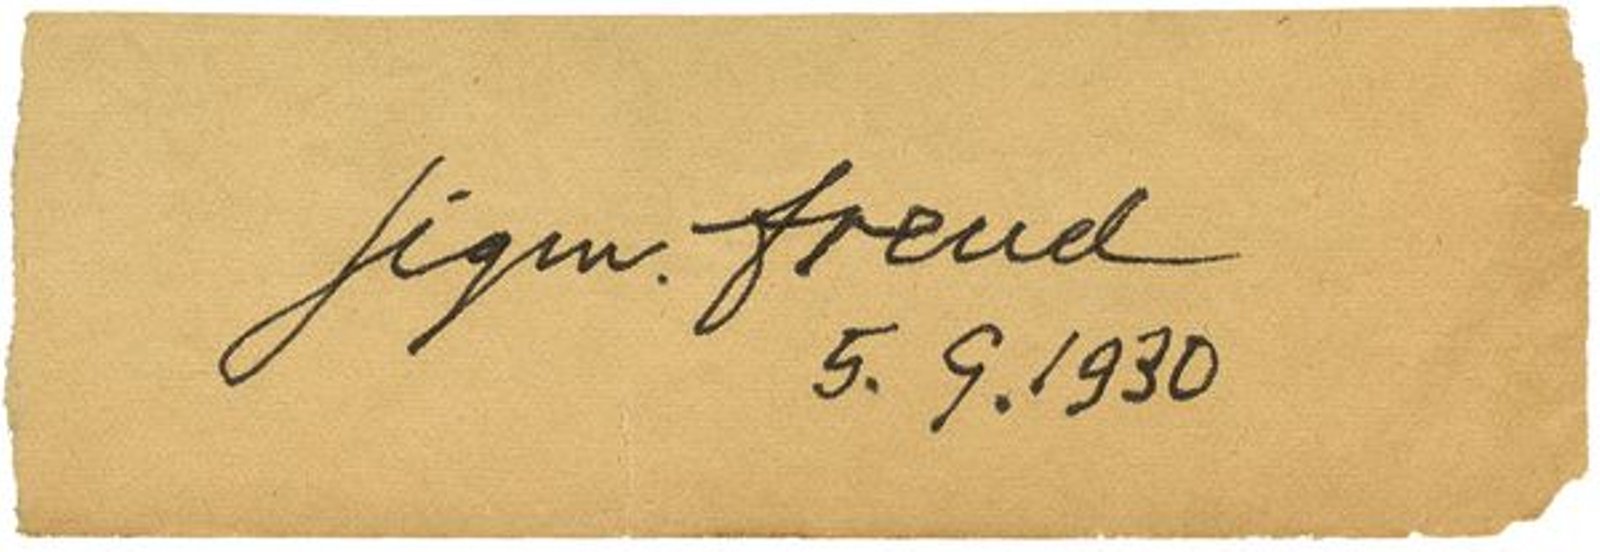 Sigm. Freud
5. 9. 1930